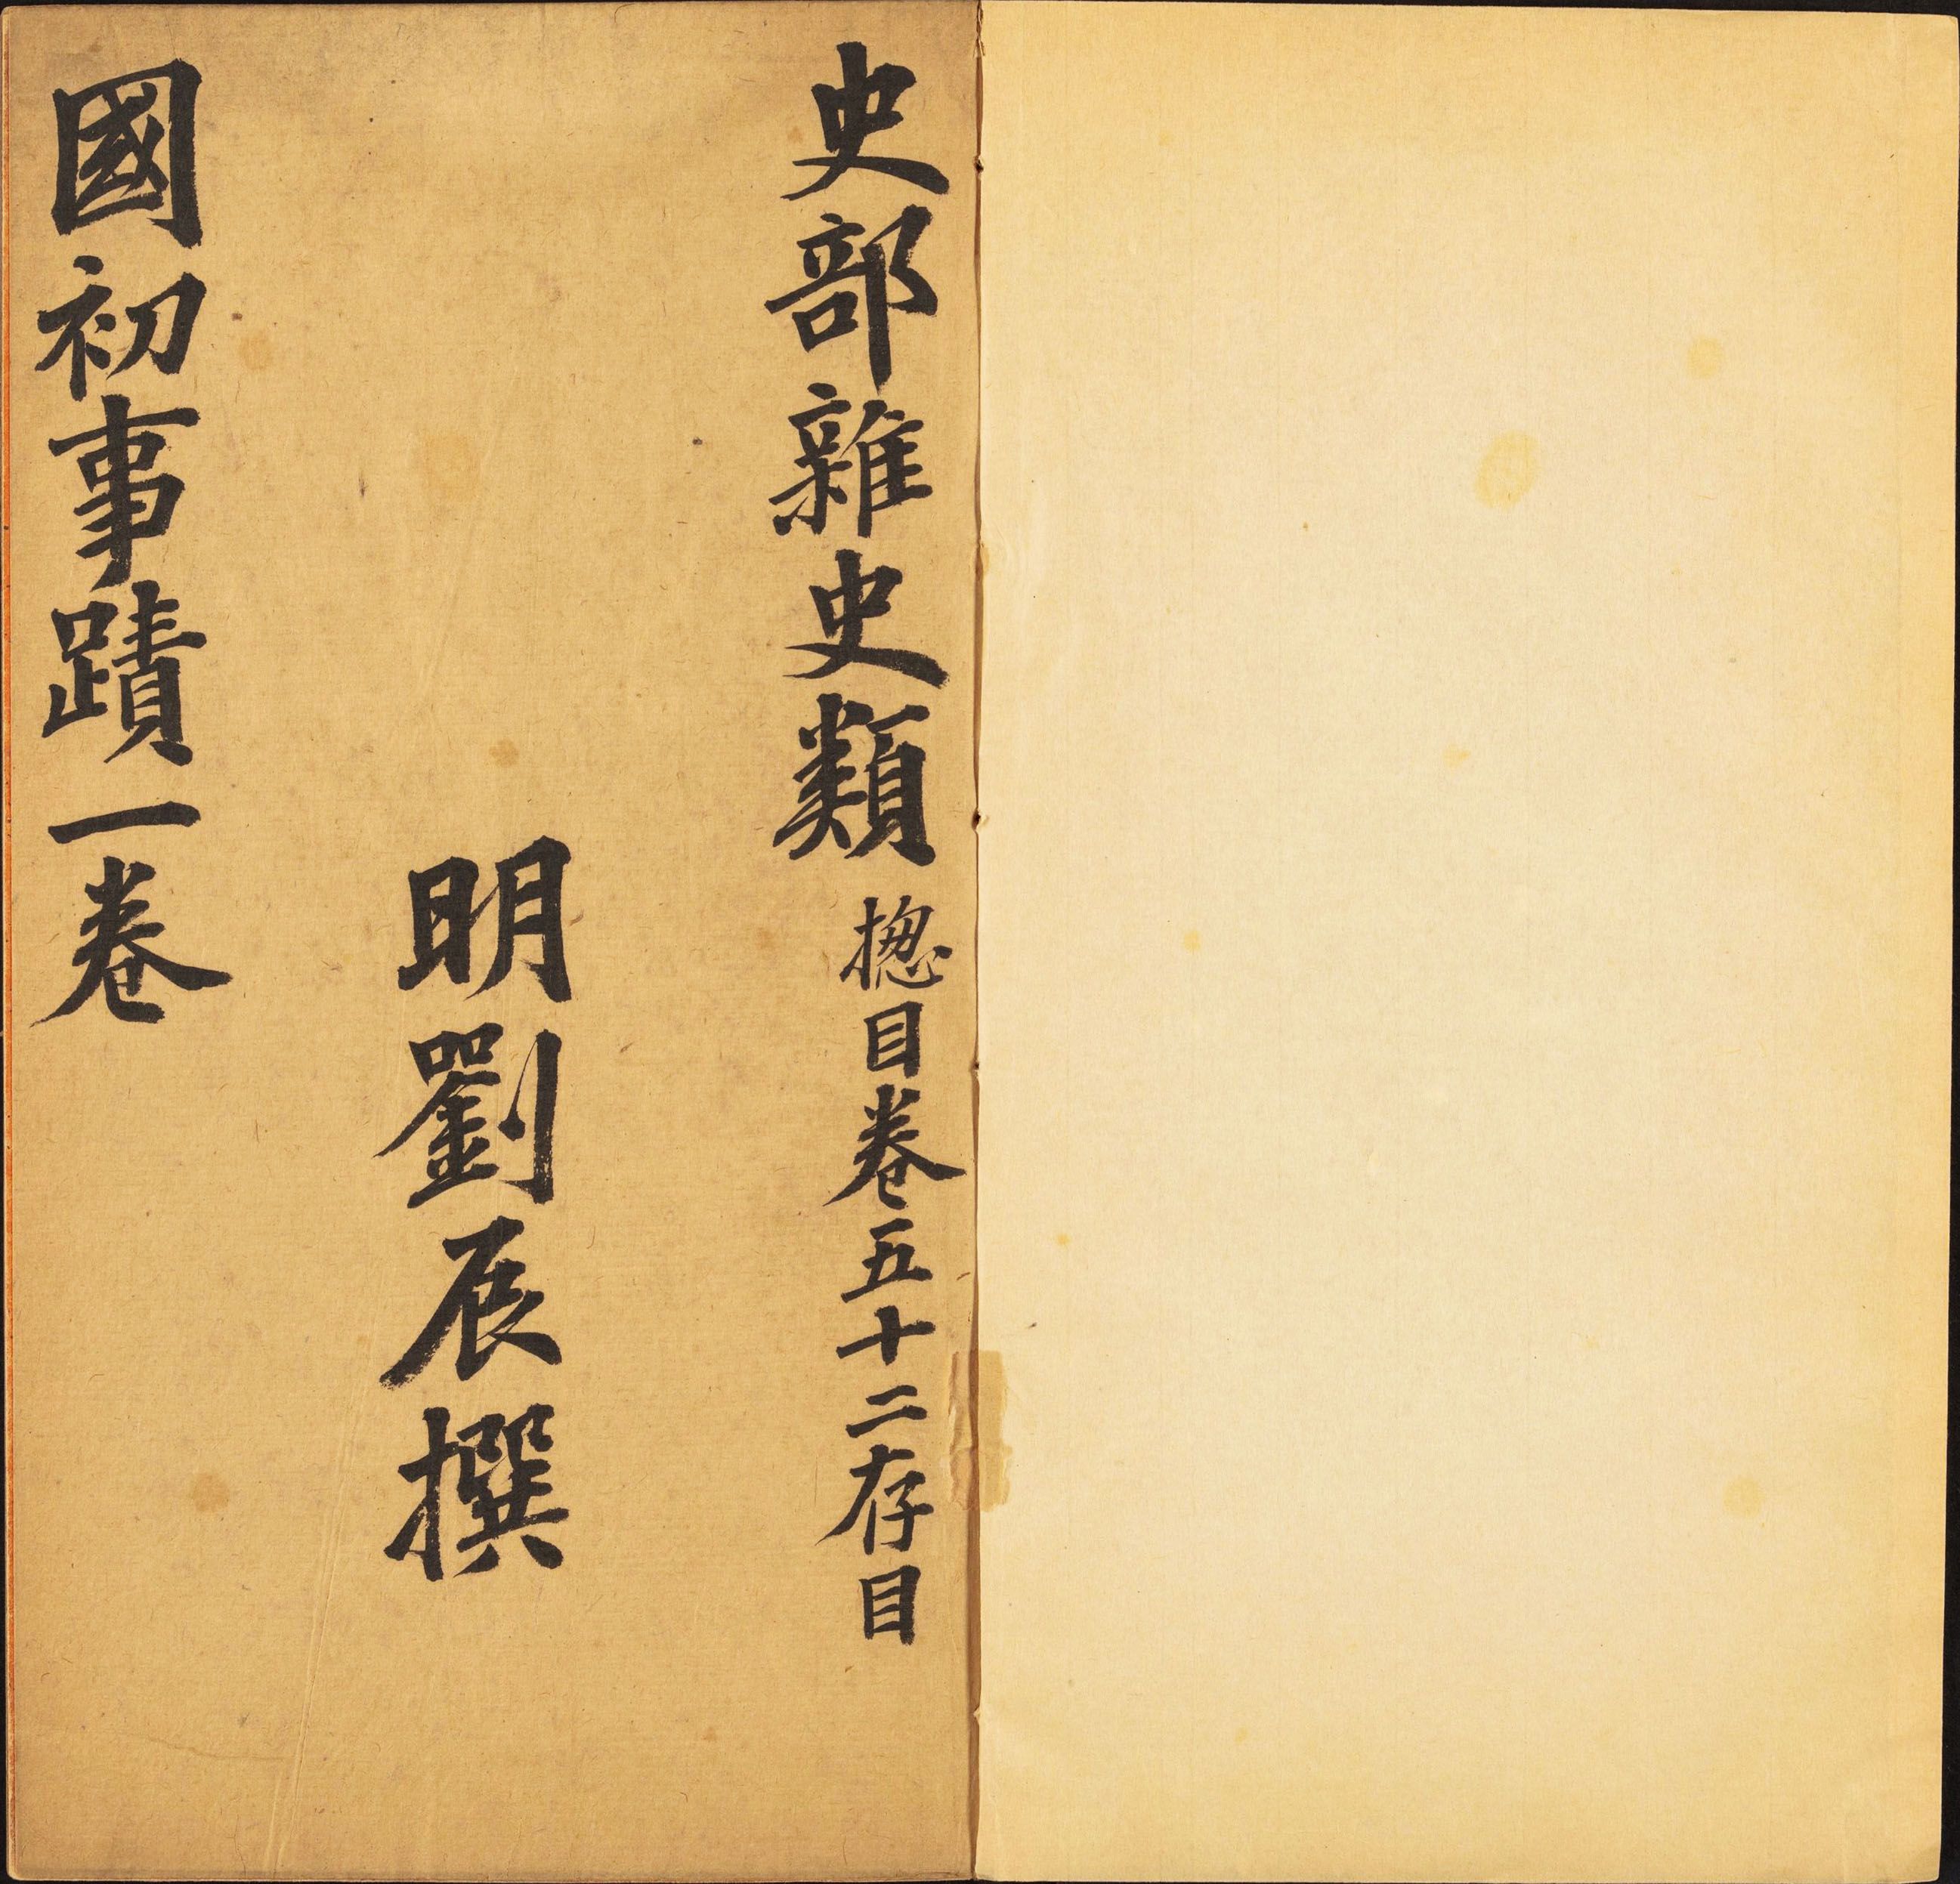 史部雜史類 揔目卷五十二存目
明劉辰撰
國初事蹟一卷